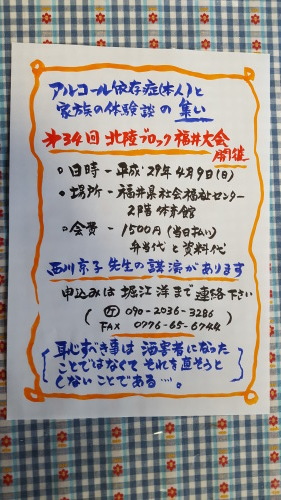 アルコール依存症(本人)と
家族の体験談の集い
第34回 北陸ブロック福井大会
開催
○日時-平成29年4月9日(日)
○場所-福井県社会福祉センター
2階 体育館
○会費-1500円(当日払)
弁当代と資料代
西川京子先生の講演があります
申込みは堀江洋まで連絡下さい
090-2036-3286
FAX 0776-65-6744
恥じすべき事は酒害者になった
ことではなくてそれを直そうと
しないことである…。